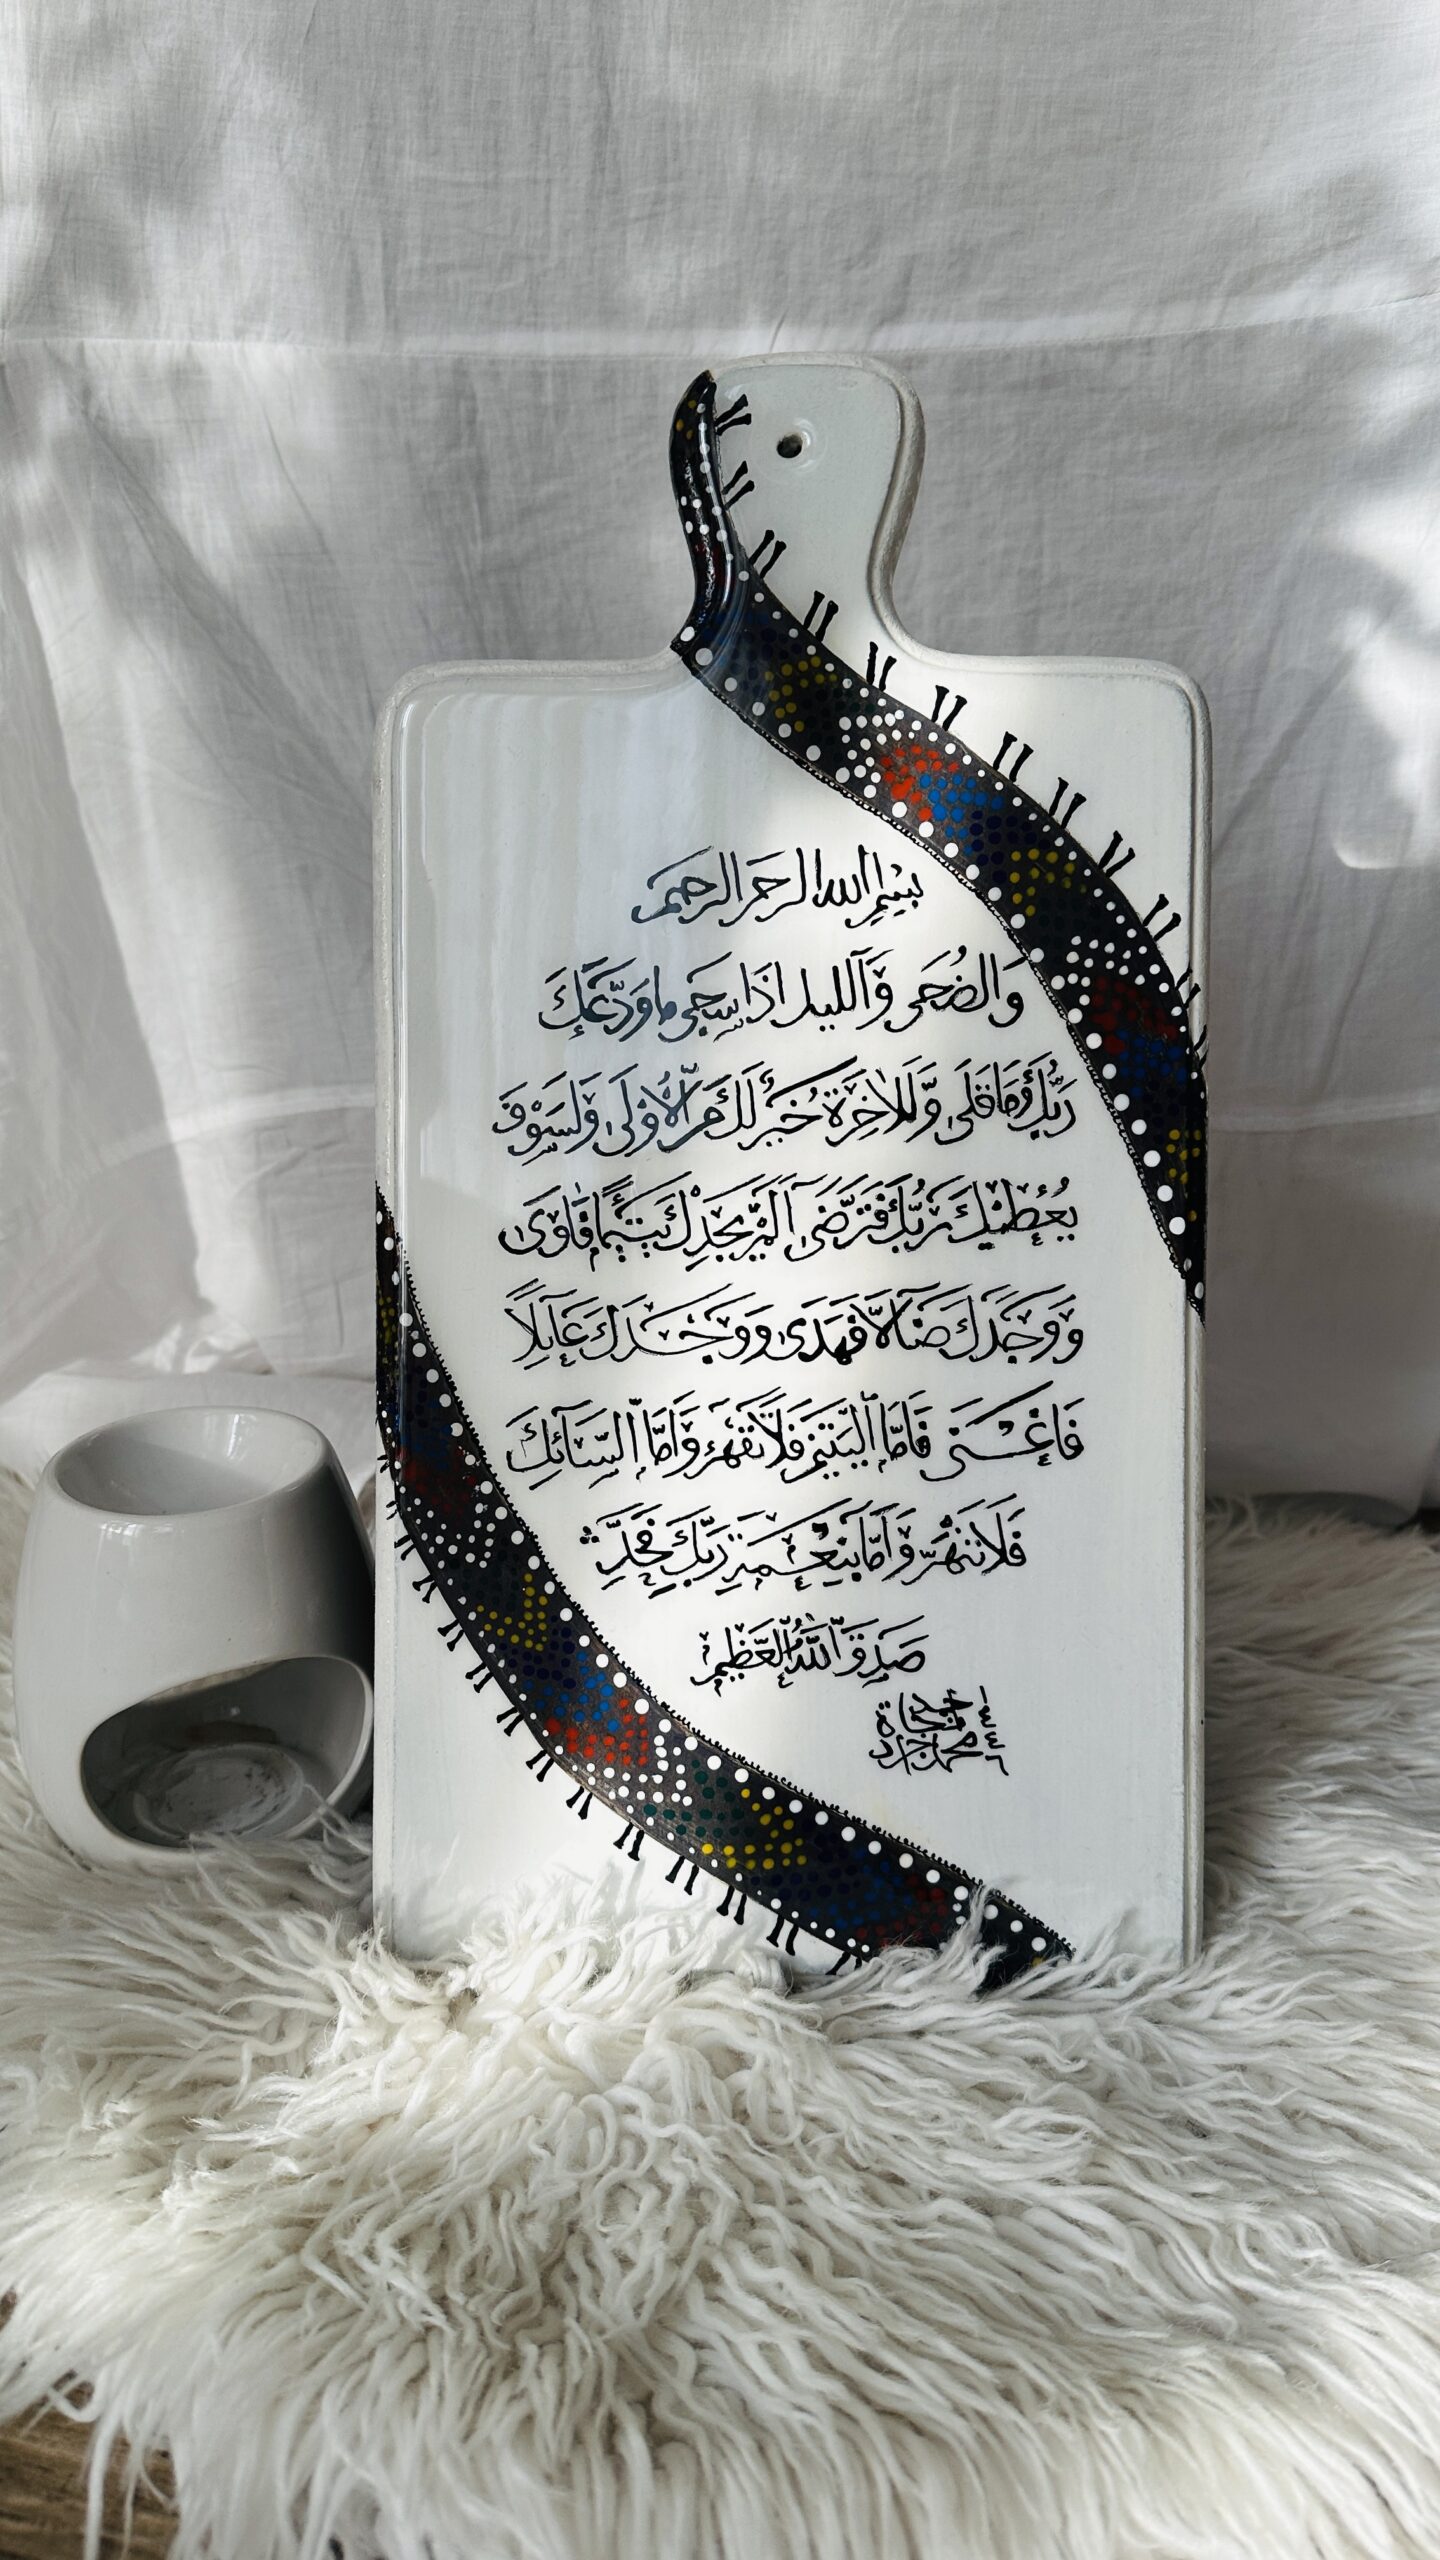 بِسْمِ الله الرحمن الرحيم
وَالضُحَى وَٱلليل اذَا سجى ما وَدَّعَكَ
رَبُّكَ وَمَا قَلَى وَّلَلاخِرَةُ خَيْرٌ لَكَ مِنَ الْأُولَى وَلَسَوْفَ
يُعْطِيكَ رَبُّكَ فَتَرْضَى اَلَمْ يَجِدْكَ يَتِيْمًا فَاٰوَى
وَوَجَدَكَ ضَآلًّا فَهَدَى وَوَجَدَكَ عَآئِلًا
فَاغْنَى فَامَّا الْيَتِيْمَ فَلَا تَقْهَرْ وَاَمَّا السَّآئِلَ
فَلَا تَنْهَرْ وَاَمَّا بِنِعْمَةِ رَبِّكَ فَحَدِّثْ
صَدَقَ اللّٰهُ الْعَظِيْم